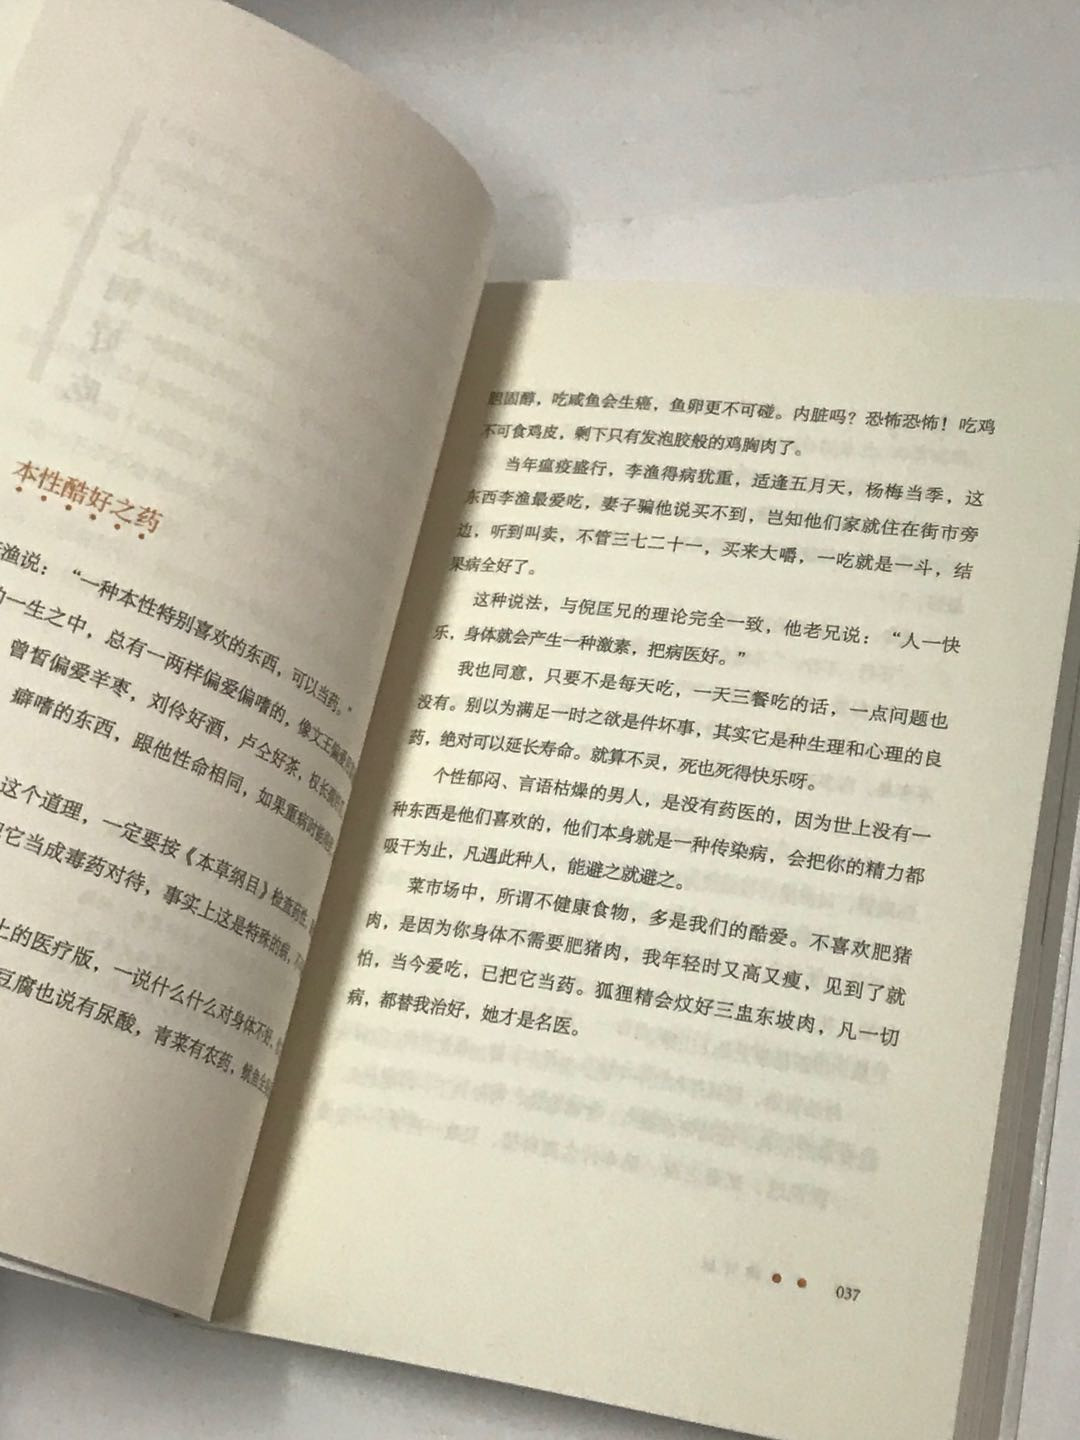 本性酷好之药
渔说：“一种本性特别喜欢的东西，可以当药。”
一生之中，总有一两样偏爱偏嗜的，像文王偏爱
曾皙偏爱羊枣，刘伶好酒，卢仝好茶，权长孺
癖嗜的东西，跟他性命相同，如果重病时能
这个道理，一定要按《本草纲目》检查药性，
它当成毒药对待，事实上这是特殊的病，
上的医疗版，一说什么什么对身体不好，
豆腐也说有尿酸，青菜有农药，鱿鱼全
胆固醇，吃咸鱼会生癌，鱼卵更不可碰。内脏吗？恐怖恐怖！吃鸡
不可食鸡皮，剩下只有发泡胶般的鸡胸肉了。
当年瘟疫盛行，李渔得病犹重，适逢五月天，杨梅当季，这
东西李渔最爱吃，妻子骗他说买不到，岂知他们家就住在街市旁
边，听到叫卖，不管三七二十一，买来大嚼，一吃就是一斗，结
果病全好了。
这种说法，与倪匡兄的理论完全一致，他老兄说：“人一快
乐，身体就会产生一种激素，把病医好。”
我也同意，只要不是每天吃，一天三餐吃的话，一点问题也
没有。别以为满足一时之欲是件坏事，其实它是种生理和心理的良
药，绝对可以延长寿命。就算不灵，死也死得快乐呀。
个性郁闷、言语枯燥的男人，是没有药医的，因为世上没有一
种东西是他们喜欢的，他们本身就是一种传染病，会把你的精力都
吸干为止，凡遇此种人，能避之就避之。
菜市场中，所谓不健康食物，多是我们的酷爱。不喜欢肥猪
肉，是因为你身体不需要肥猪肉，我年轻时又高又瘦，见到了就
怕，当今爱吃，已把它当药。狐狸精会炆好三盅东坡肉，凡一切
病，都替我治好，她才是名医。
037